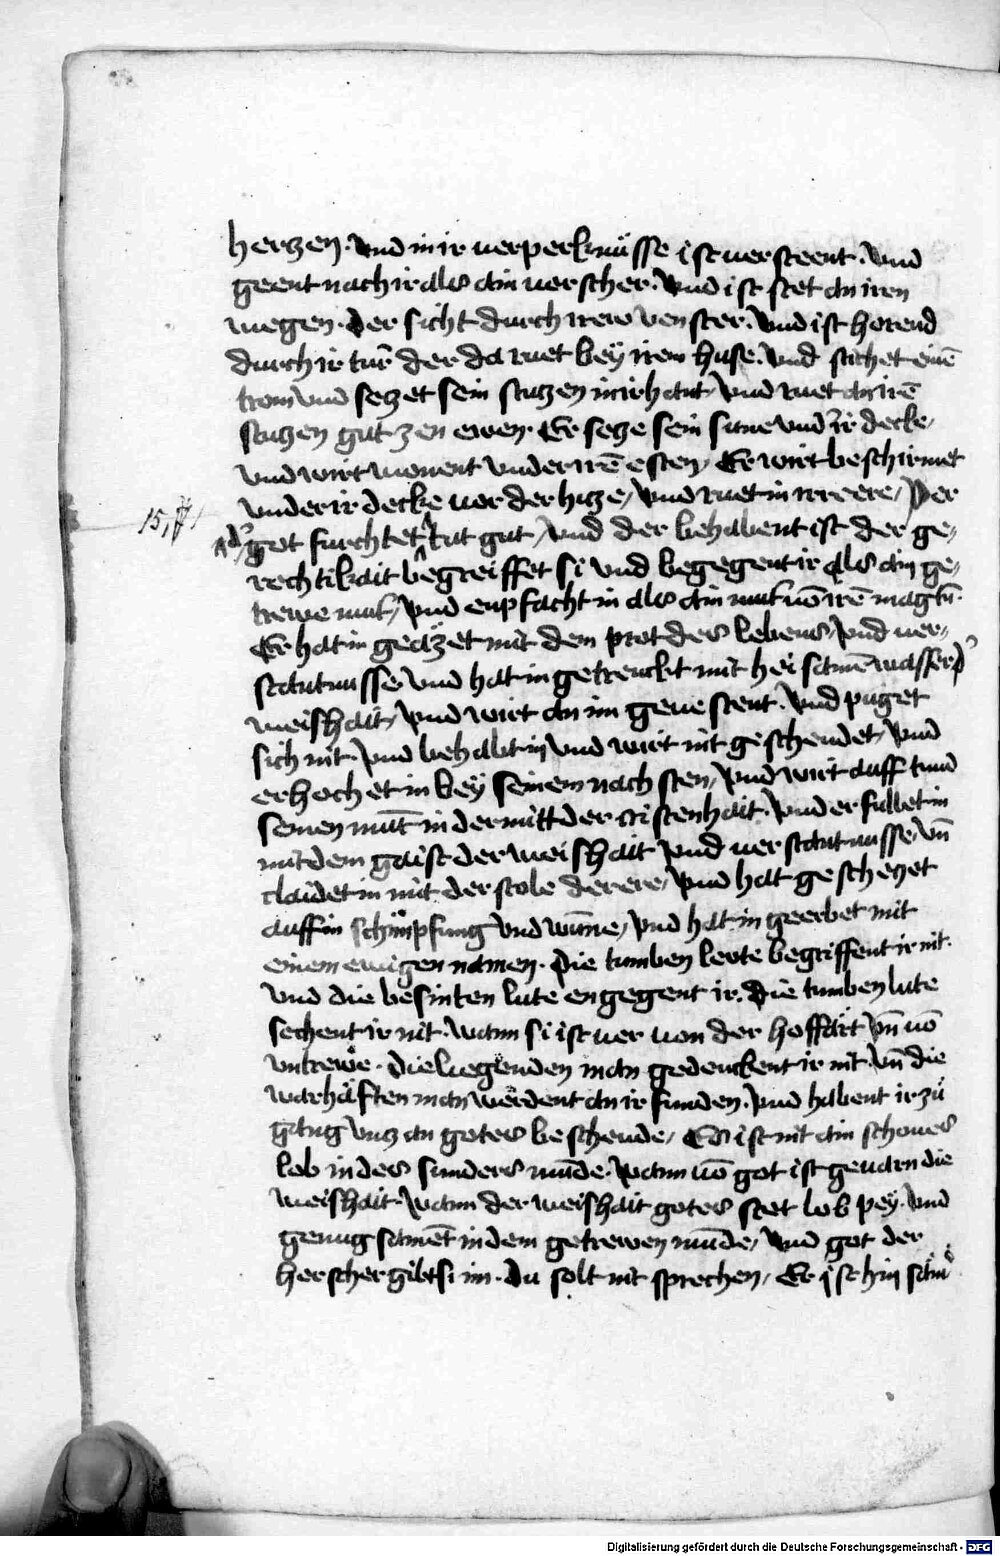 herczen. vnd in ir verperknüsse ist versteent. vnd
geent nach ir als ain vorscher. vnd ist stet an iren
wegen. Der sicht durch irew venster. vnd ist horend
durch ir tür der da ruet bey irem huse. vnd stichet einē
trom vnd seczet sein staczen in ir hant vnd ruet an irē
staczen gut zen ewen. Er secze sein süne vnd² ir decke,
vnd wirt wonent vnder irē esten, Er wirt beschirmet
vnder ir decke vor der hicze, vnd ruet in irr eere, Der
15,
got fürchtet tut gut, vnd der behabent ist der ge,
rechtikait begreiffet si vnd begegent ir als ain ge,
trewe mut, vnd enpfacht in als ain mut vō irē magtū.
Er hat in geäzet mit dem prot des lebens, vnd ver,
stantnusse vnd hat in getrenckt mit heilsamē wasser d²
weishait, vnd wirt an im geuestent. vnd puget
sich nit. vnd behabt in vnd wirt nit geschendet, vnd
erhochet in bey seinem nachsten, vnd wirt auff tund
seinen munt in der mitt der cristenhait. vnd erfullet in
mit dem gaist der weishait vnd verstantnusse. vn̄
claidet in mit der stole der ere, vnd hat geschezet
auff in schimpfung vnd wūne, vnd hat in geerbet mit
einem ewigen namen. Die tumben leute begriffent ir nit.
vnd die besinten lute engegent ir. Die tumben lute
sechent ir nit. wann si ist ver von der hoffart vn̄ vō
vntrewe. die liegenden man gedenckent ir nit. vn̄ die
warhaften man werdent an ir funden. vnd habent ir zů
gang vncz an gotes beschende, Es ist nit ain schones
lob in des sunders munde. wann vō got ist geuarn die
weishait. wann der weishait gotes stet lob pey. vnd
genug samēt in dem getrewen munde, vnd got der
herscher gibt si im. Du solt nit sprechen, Er ist hin
Digitalisierung gefördert durch die Deutsche Forschungsgemeinschaft - DFG